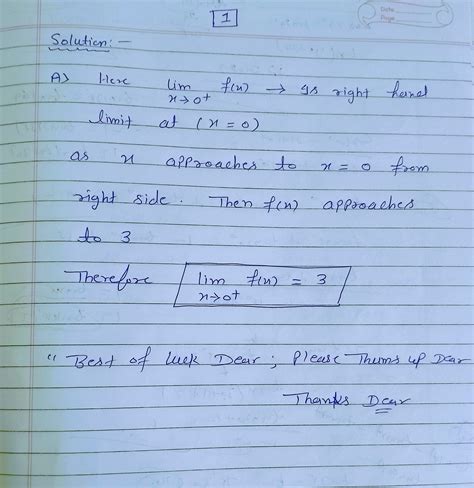 1
Date
Page
Solution: —
A) Here lim f(x) → Is right hand
x→0+
limit at (x = 0)
as x approaches to x = 0 from
right side. Then f(x) approaches
to 3
Therefore lim f(x) = 3
x→0+
" Best of luck Dear; Please Thums up Dear
Thanks Dear